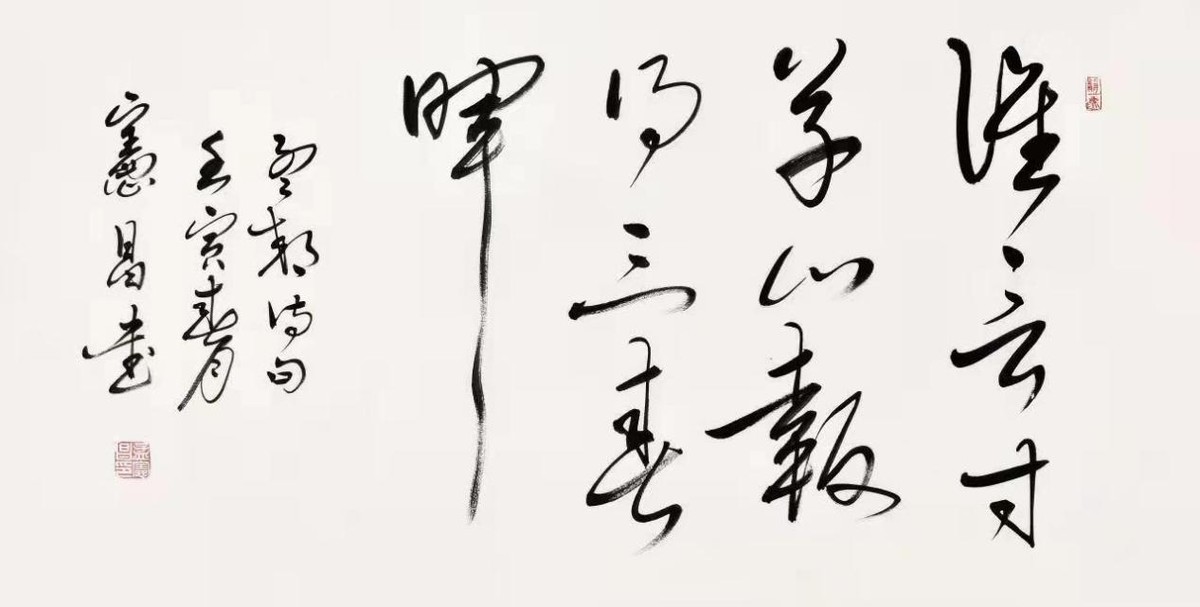 誰言寸
草心報
得三春
暉
孟郊詩句
壬寅春月
憲昌書